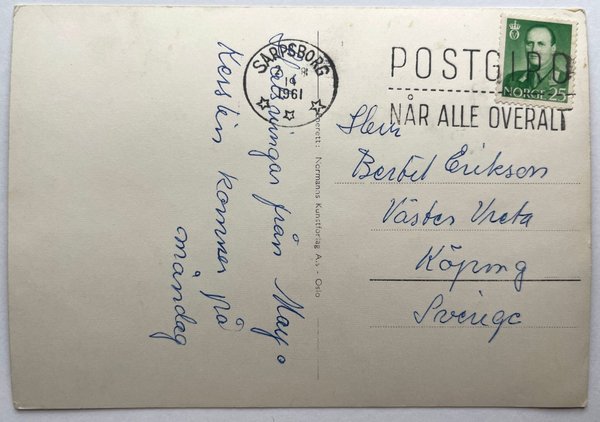 Hälsningar från May o
Kerstin kommer på
måndag
SARPSBORG
14
1961
POSTGIRO
NÅR ALLE OVERALT
NORGE 25
enerett: Normanns Kunstforlag A.s - Oslo
Herr
Bertil Erikson
Väster Vreta
Köping
Sverige